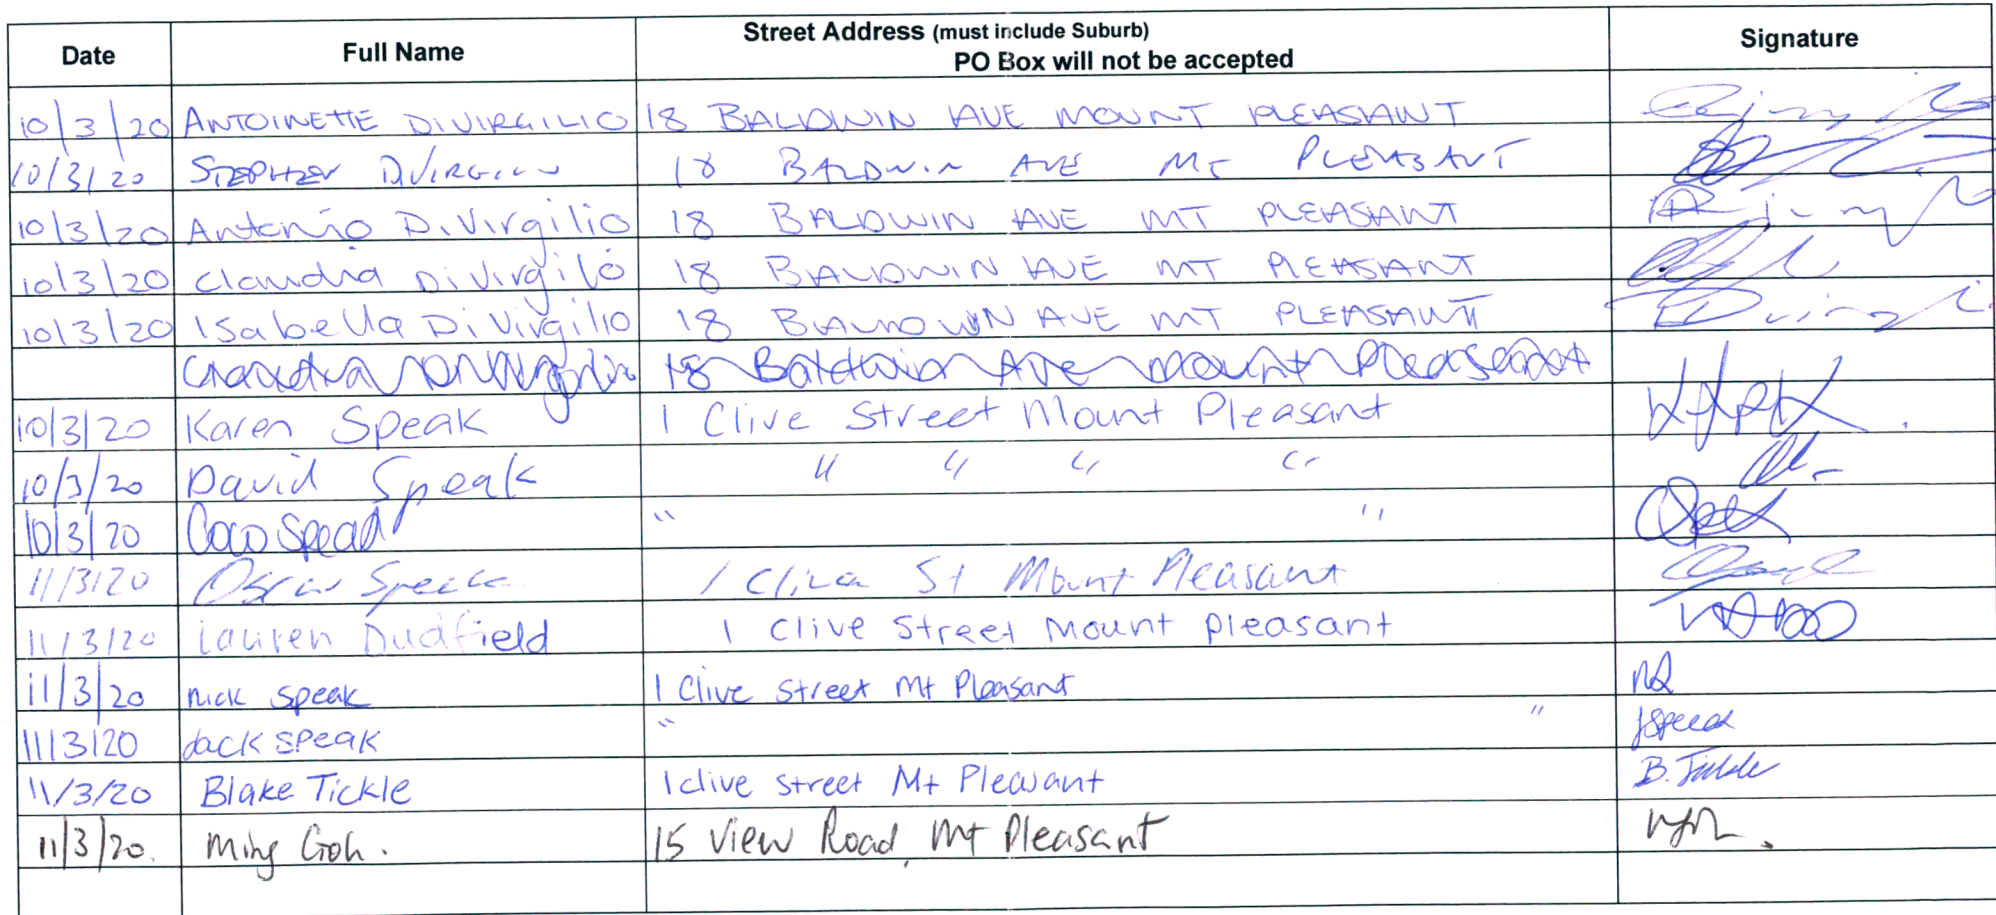 Date Full Name Street Address (must include Suburb) PO Box will not be accepted Signature
10/3/20 ANTOINETTE DIVIRGILIO 18 BALDWIN AVE MOUNT PLEASANT
10/3/20 STEPHEN DIVIRGILIO 18 BALDWIN AVE MT PLEASANT
10/3/20 Antonio DiVirgilio 18 BALDWIN AVE MT PLEASANT
10/3/20 Claudia DiVirgilio 18 BALDWIN AVE MT PLEASANT
10/3/20 Isabella DiVirgilio 18 BALDWIN AVE MT PLEASANT
18 Baldwin Ave Mount Pleasant
10/3/20 Karen Speak 1 Clive Street Mount Pleasant
10/3/20 David Speak " " " "
10/3/20 Coco Speak " "
11/3/20 Oscar Speak 1 Clive St Mount Pleasant
11/3/20 Lauren Dudfield 1 Clive Street Mount pleasant
11/3/20 nick speak 1 Clive Street Mt Pleasant
11/3/20 Jack speak " "
11/3/20 Blake Tickle 1 clive street Mt Pleasant B. Tickle
11/3/20. Ming Goh. 15 View Road, Mt Pleasant